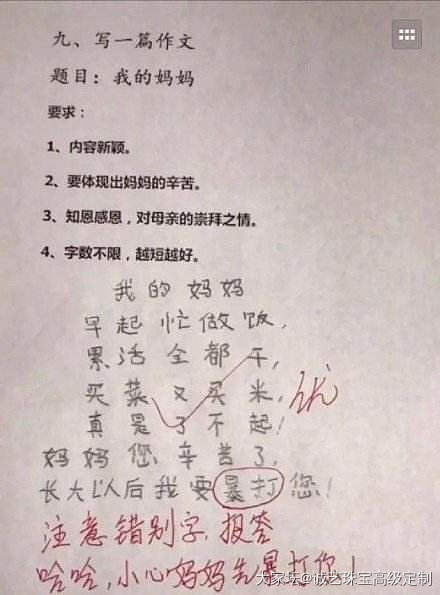 九、写一篇作文
题目：我的妈妈
要求：
1、内容新颖。
2、要体现出妈妈的辛苦。
3、知恩感恩，对母亲的崇拜之情。
4、字数不限，越短越好。
我的妈妈
早起忙做饭，
累活全都干，
买菜又买米，
优
真是了不起！
妈妈您辛苦了，
长大以后我要暴打您！
注意错别字，报答
哈哈，小心妈妈先暴打你！
大家坛@诚艺珠宝高级定制